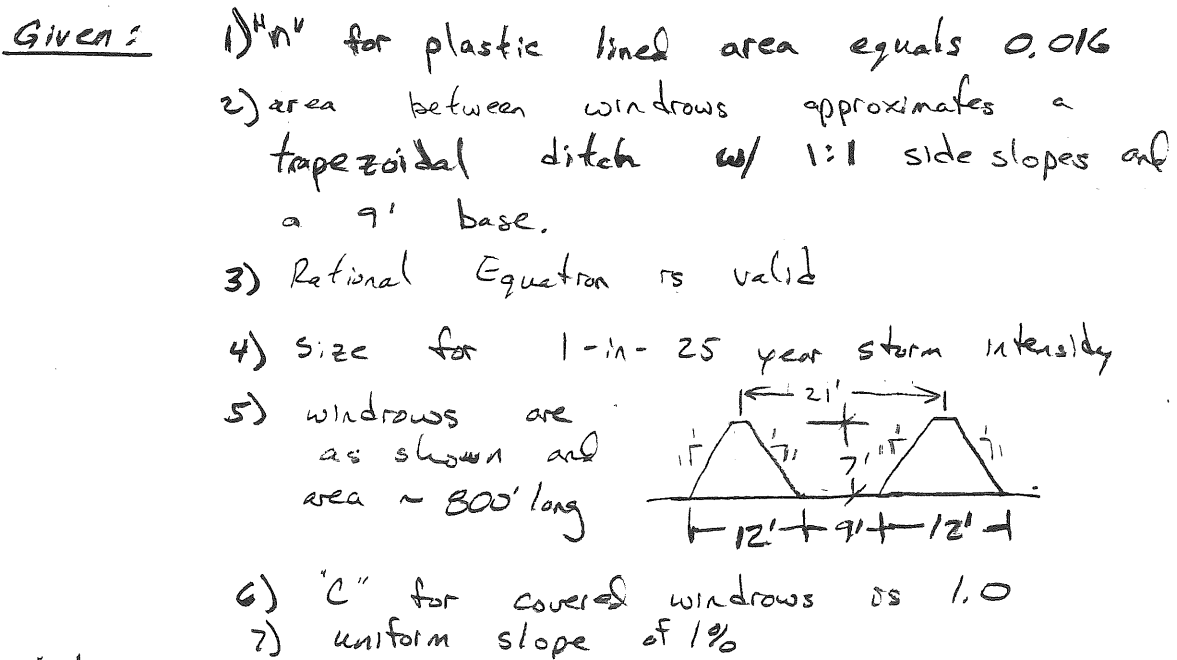 Given:
1) "n" for plastic lined area equals 0.016
2) area between windrows approximates a
trapezoidal ditch w/ 1:1 side slopes and
a 9' base.
3) Rational Equation is valid
4) Size for 1-in-25 year storm intensity
21'
5) windrows are
as shown and
area ~ 800' long
7'
12' 9' 12'
6) "C" for covered windrows is 1.0
7) uniform slope of 1%